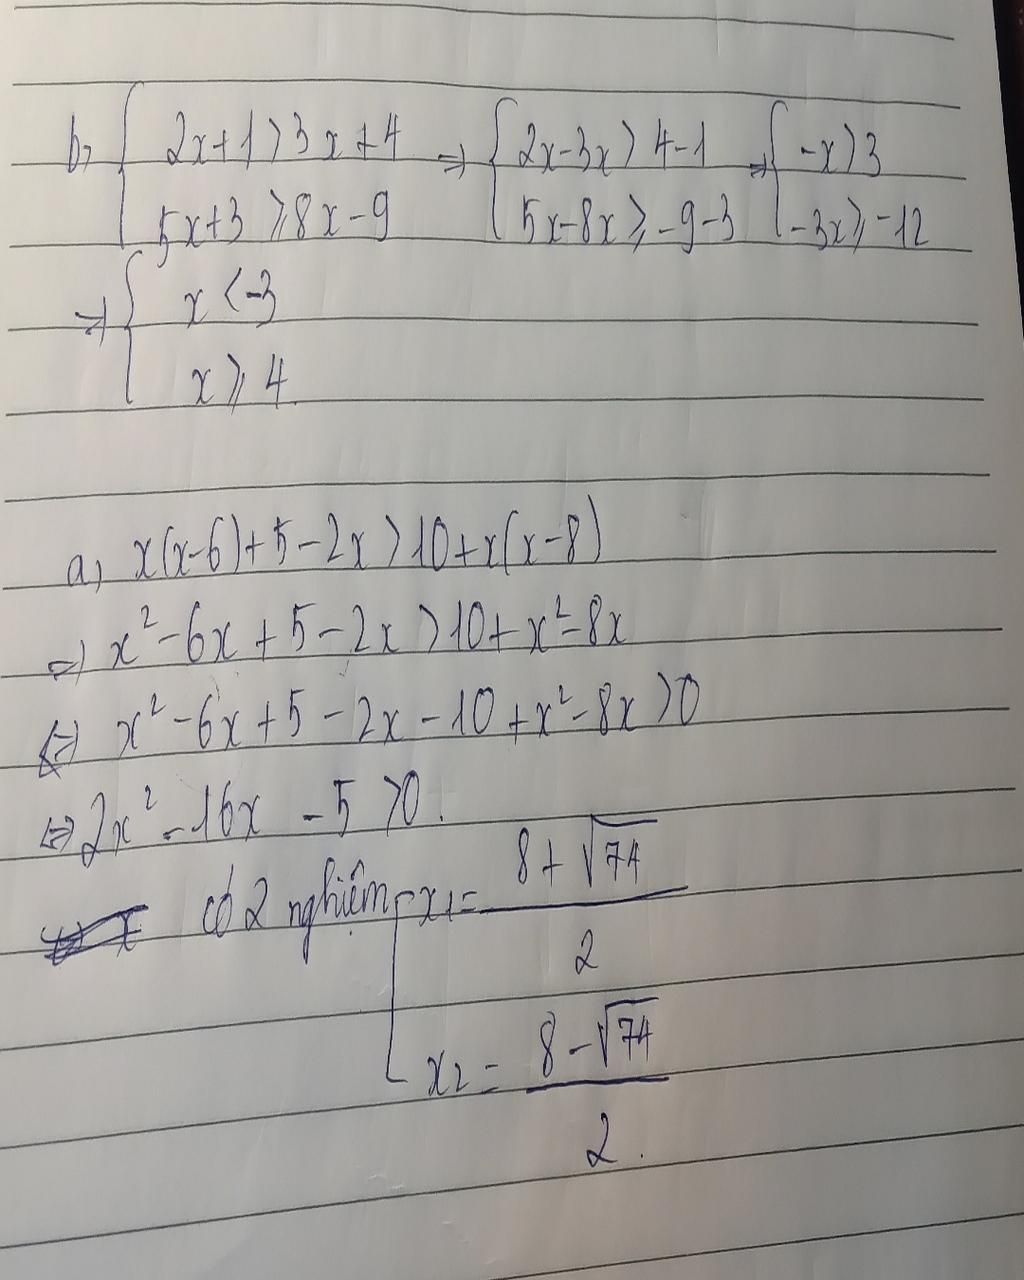 b, { 2x+1>3x+4 => { 2x-3x>4-1 => { -x>3
5x+3 ⩾8x-9 5x-8x⩾-9-3 -3x⩾-12
=> { x <-3
x ⩾ 4.
a, x(x-6)+5-2x>10+x(x-8)
=> x²-6x+5-2x>10+x²-8x
<=> x²-6x+5-2x-10+x²-8x>0
<=> 2x²-16x-5>0.
có 2 nghiệm [ x1= (8+√74)/2
x2= (8-√74)/2.